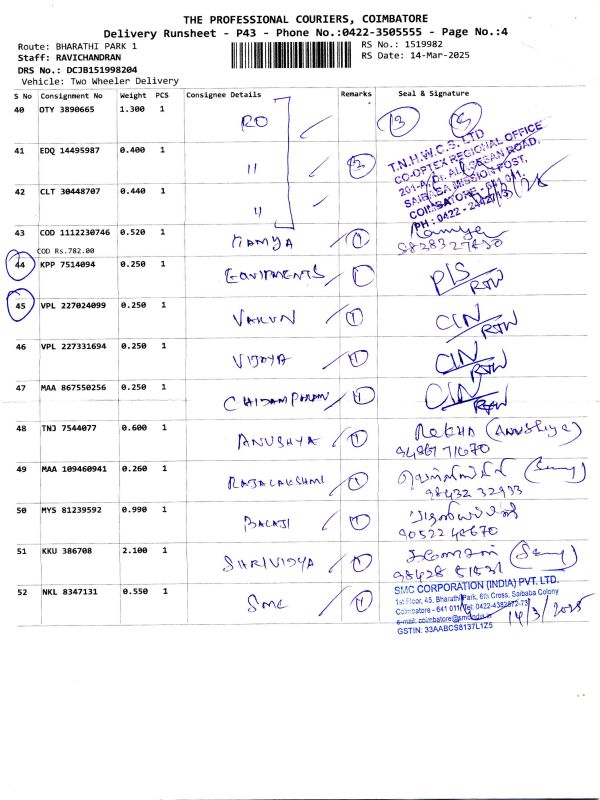 THE PROFESSIONAL COURIERS, COIMBATORE
Delivery Runsheet - P43 - Phone No.:0422-3505555 - Page No.:4
Route: BHARATHI PARK 1
RS No.: 1519982
Staff: RAVICHANDRAN
RS Date: 14-Mar-2025
DRS No.: DCJB151998204
Vehicle: Two Wheeler Delivery
S No Consignment No Weight PCS Consignee Details Remarks Seal & Signature
40 OTY 3890665 1.300 1 RO 13
41 EDQ 14495987 0.400 1 11
T.N.H.W.C.S. LTD
CO-OPTEX REGIONAL OFFICE
SAIBABA MISSION POST,
COIMBATORE - 641 011.
42 CLT 30448707 0.440 1 11
43 COD 1112230746 0.520 1 RAMYA 1 Ramya
COD Rs.782.00
44 KPP 7514094 0.250 1 EQUIPMENTS 1 P/S RTN
45 VPL 227024099 0.250 1 VARUN 1 CIN RTN
46 VPL 227331694 0.250 1 VIJAYA 1 CIN RTN
47 MAA 867550256 0.250 1 CHIDAMPARAM 1 CIN RTN
48 TNJ 7544077 0.600 1 ANUSHYA 1 Rekha (Anushiya)
94867 71670
49 MAA 109460941 0.260 1 RAJALAKSHMI 1
98432 32933
50 MYS 81239592 0.990 1 BALAJI 1
51 KKU 386708 2.100 1 SHRIVIDYA 1
52 NKL 8347131 0.550 1 SMC 1
SMC CORPORATION (INDIA) PVT. LTD.
1st Floor, 45, Bharathi Park, 6th Cross, Saibaba Colony
Coimbatore - 641 011 Tel: 0422-4382872-73
e-mail: coimbatore@smcindia.in
14/3/2025
GSTIN: 33AABCS8137L1Z5